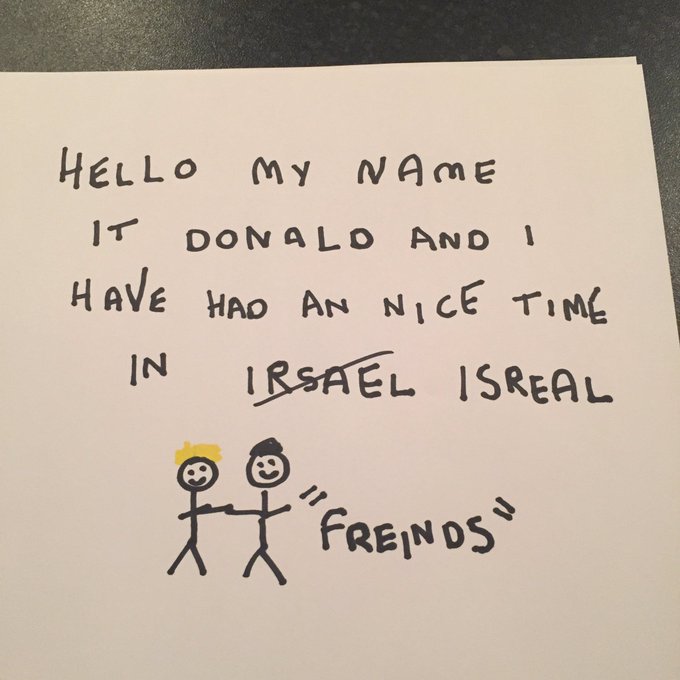 HELLO MY NAME
IT DONALD AND I
HAVE HAD AN NICE TIME
IN IRSAEL ISREAL
"FREINDS"